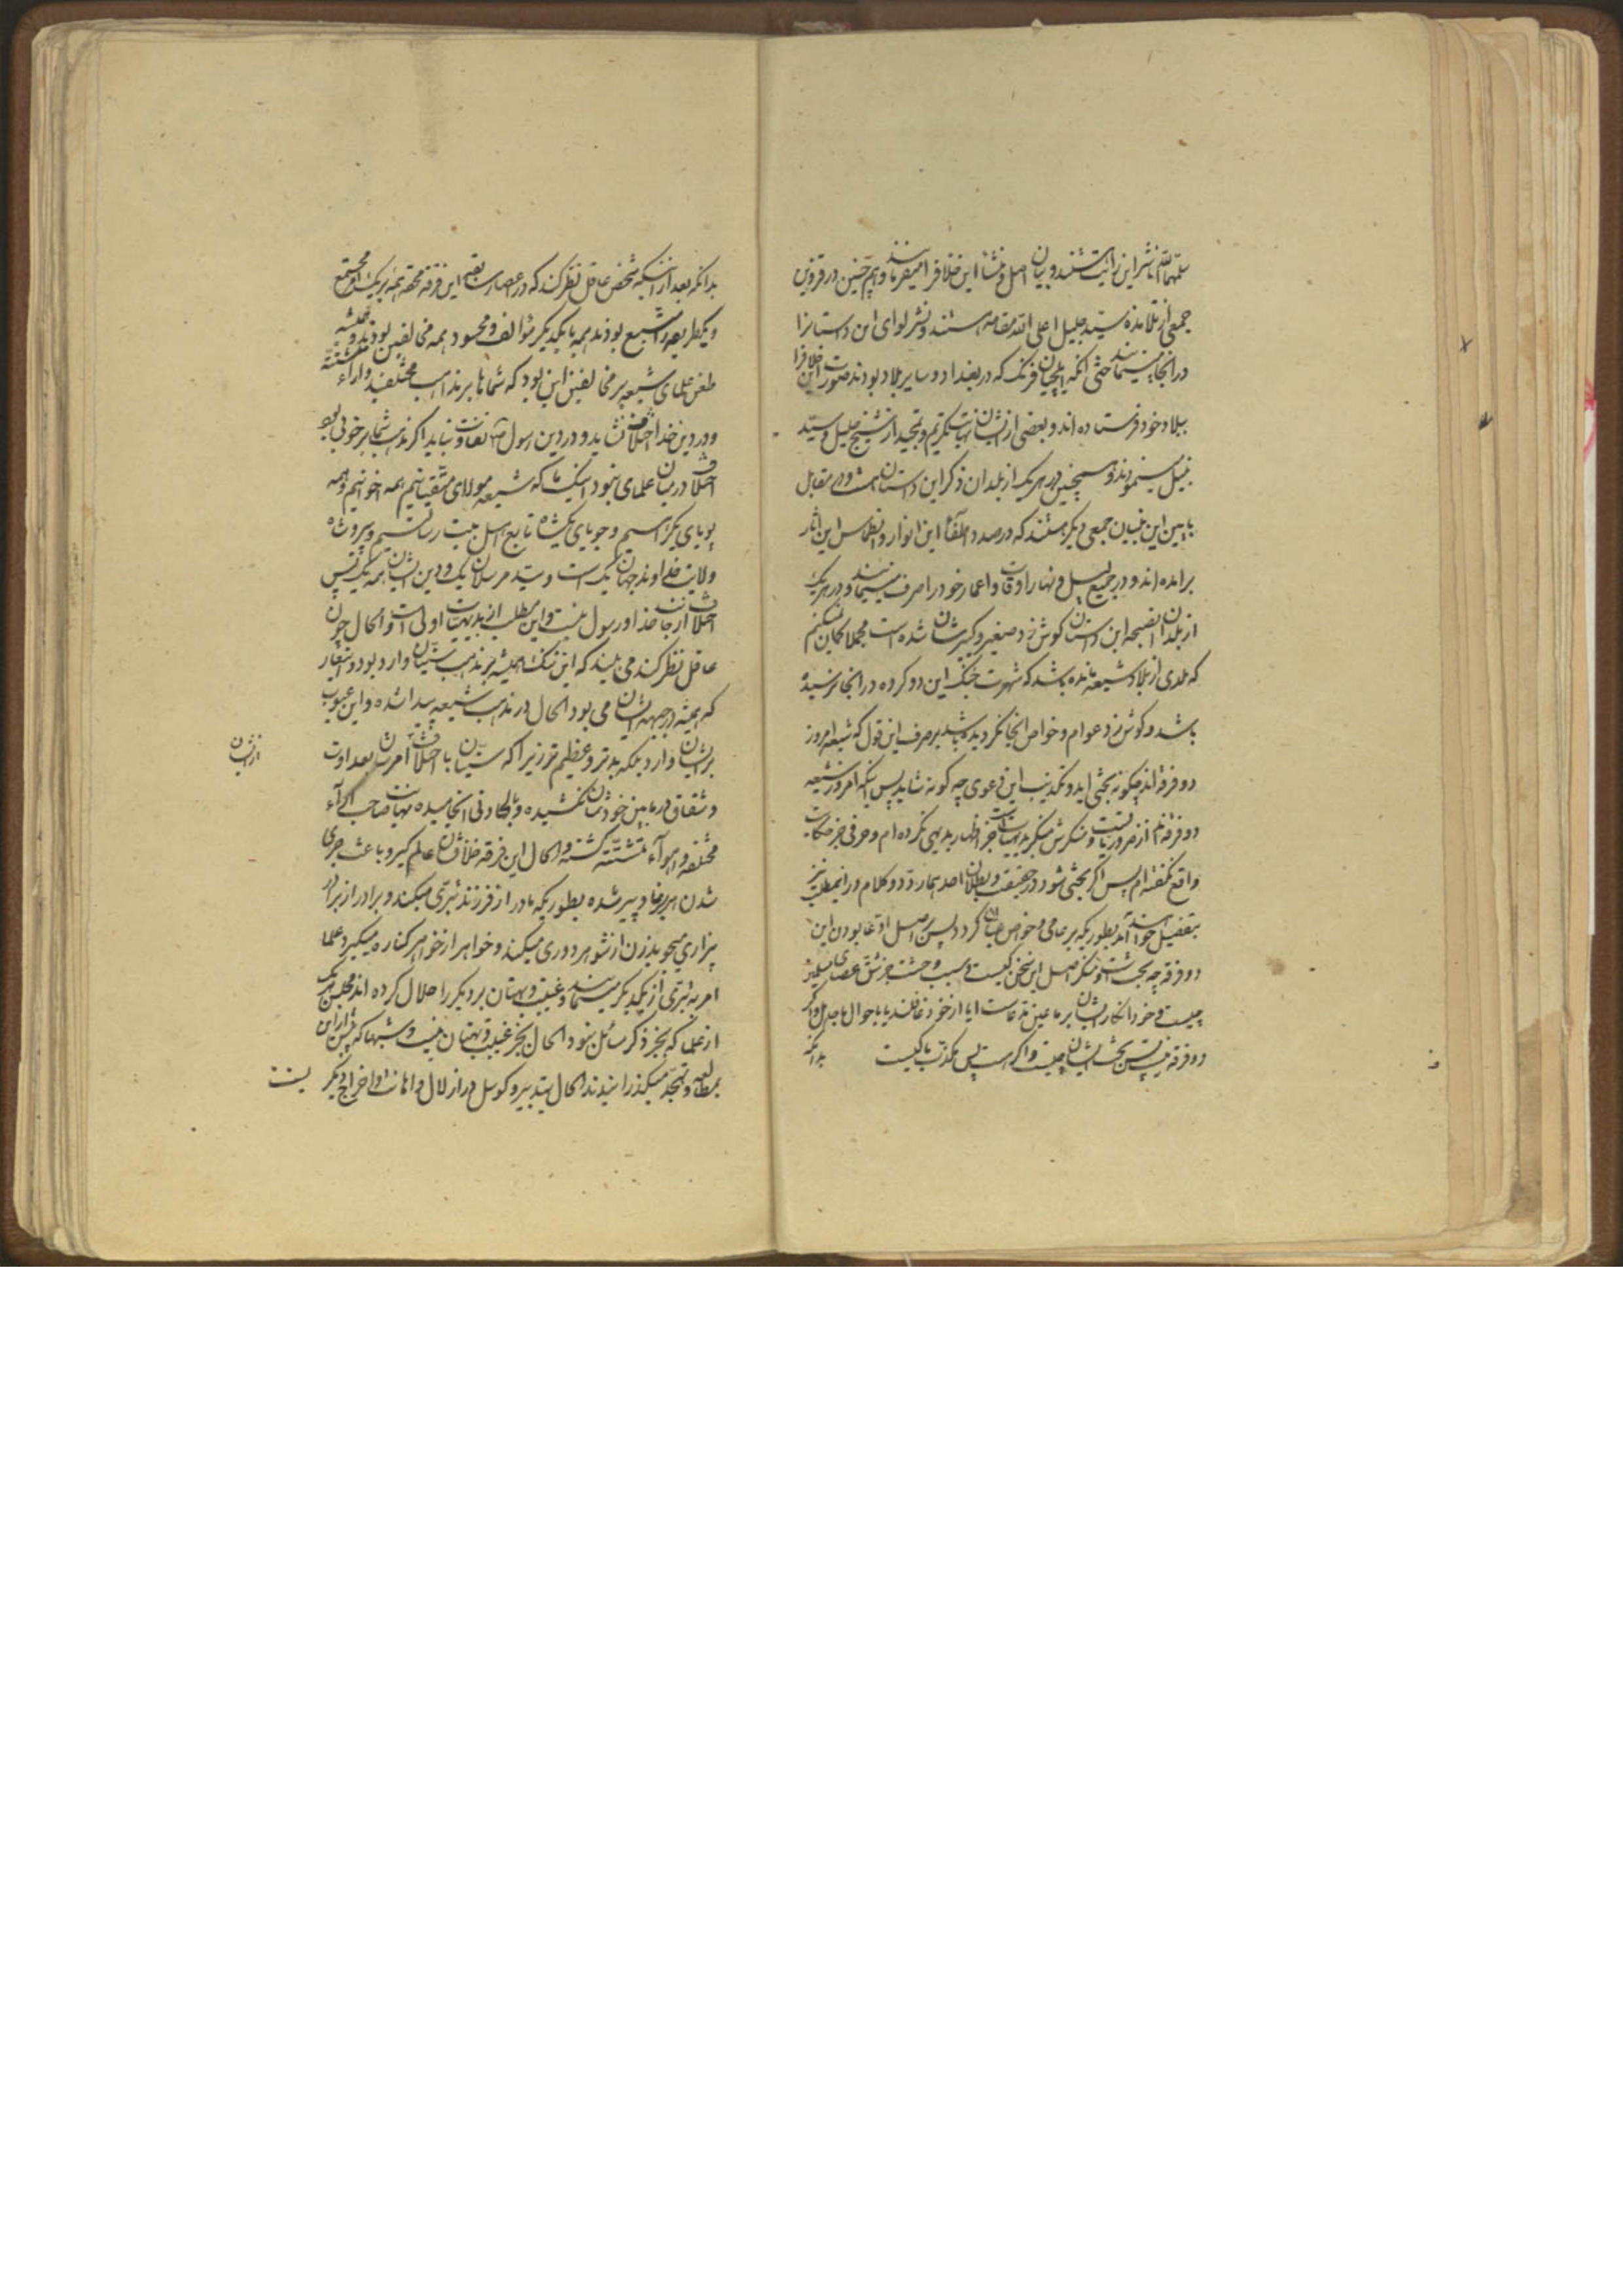 سلمهم الله ناشر این رایت هستند و بیان اصل و منشأ این خلاف را میفرمایند و هم چنین در قزوین
جمعی از تلامذه سید جلیل اعلی الله مقامه هستند و نشر لوای این داستانرا
در آنجا مینمایند حتی آنکه ایلچیان فرنک که در بغداد و سایر بلاد بودند صورت این خلاف را
ببلاد خود فرستاده اند و بعضی از ایشان نهایت تکریم و تمجید از شیخ جلیل و سید
نبیل مینمودند و همچنین در هر یک از بلدان ذکر این داستان هست و در مقابل
بابین این بنیان جمعی دیگر هستند که در صدد اطفآء این انوار و انطماس این آثار
برآمده اند و در جمیع لیل و نهار اوقات و اعمار خود را صرف مینمایند و در هر یک
از بلدان این داستان کوش زد صغیر و کبیرشان شده است مجملا کمان نمیکنم
که بلدی از بلاد شیعه مانده باشد که شهرت جنک این دو کروه در آنجا نرسیده
باشد و کوش زد عوام و خواص آنجا نکردیده باشد بر صرف این قول که شیعه امروز
دو فرقه اند چکونه بحثی آید و تکذیب این دعوی چه کونه شاید پس اینکه امروز شیعه
دو فرقه اند از ضروریات است و منکرش منکر بدیهیات است جز اظهار بدیهی نکرده ام و حرفی جز حکایت
واقع نکفته ام پس اکر بحثی شود در حقیقت و بطلان احدیهما رد و کلام در اینمطلب نیز
بتفصیل خواهد آمد بطوریکه بر عامی و خواص عیان کردد پس بر اصل ادعا بودن این
دو فرقه چه بحث است و منکر اصل این سخن کیست و سبب وحشت جز شق عصای مسلمین
چیست و خود انکار ایشان بر ما عین مدعاست آیا از خود غافلند یا باحوال ما جاهل و اکر
دو فرقه نیست پس بحث ایشان چیست و اکر هست پس مکذب ما کیست
بدانکه
بدانکه بعد از اینکه شخص عاقل نظر کند که در اعصار سابقه این فرقه محقه همه بر یک امر مجتمع
و یکطریقه را متبع بودند همه با یکدیکر مؤالف و محسود همه مخالفین بودند و همیشه
طعن علمای شیعه بر مخالفین این بود که شماها بر مذاهب مختلفید و آراء متشتته
و در دین خدا اختلاف نشاید و در دین رسول ص تفاوت نباید اکر مذهب شما بر خوبی بود
اختلاف در میان علمای نبود اینک ما که شیعه مولای متقیانیم همه اخوانیم و همه
پویای یکراهیم و جویای یکشاه تابع اهل بیت رسالتیم و پیرو شاه
ولایت خداوند جهان یک است و سید مرسلان یک و دین ایشان همه یک پس
اختلاف از جانب خدا و رسول نیست و این مطلب از بدیهیات اولی است و الحال چون
عاقل نظر کند می بیند که این ننک همیشه بر مذهب سنیان وارد بود و شعار
که همیشه در جبهه ایشان می بود الحال در مذهب شیعه پیدا شده و این عیوب
بر ایشان وارد بلکه بدتر و عظیم تر زیرا که سنیان با اختلاف امرشان بعداوت
و شقاق در مابین خودشان نکشیده و بالحاد و نی انجامیده نهایت صاحب آراء
مختلفه و اهوآء متشتته کشته و الحال این فرقه خلافشان عالم کیر و باعث جری
شدن هر برنا و پیر شده بطوریکه مادر از فرزند تبری میکند و برادر از برادر
بیزاری میجوید زن از شوهر دوری میکند و خواهر از خواهر کناره میکیرد علما
امر به تبری از یکدیکر مینمایند و غیبت و بهتان بر دیکر را حلال کرده اند مجلس هر یک
از علما که بجز ذکر مسائل نبود الحال بجز غیبت و بهتان نیست و شبها که پیش از این
بمطالعه و تهجد میکذرانیدند الحال بتدبیر و کوسل در ازلال و اهانت و اخراج دیکر یست
از ایشان